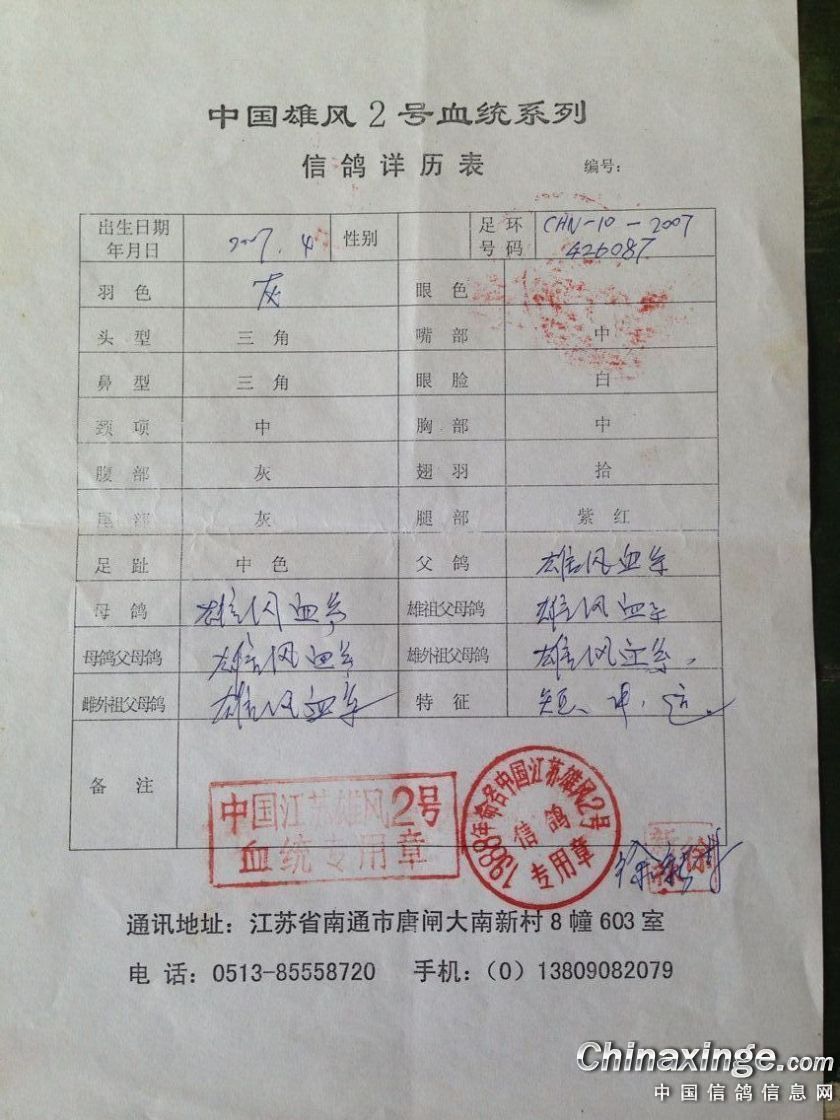 中国雄风2号血统系列
信鸽详历表 编号：
出生日期 年月日 2007.4 性别 足环号码 CHN-10-2007 426087
羽色 灰 眼色
头型 三角 嘴部 中
鼻型 三角 眼脸 白
颈项 中 胸部 中
腹部 灰 翅羽 拾
尾部 灰 腿部 紫红
足趾 中色 父鸽 雄风血系
母鸽 雄风血系 雄祖父母鸽 雄风血系
母鸽父母鸽 雄风血系 雄外祖父母鸽 雄风血系
雌外祖父母鸽 雄风血系 特征 短、中、远。
备注
中国江苏雄风2号
血统专用章
1988年命名中国江苏雄风2号
信鸽
专用章
通讯地址：江苏省南通市唐闸大南新村8幢603室
电话：0513-85558720 手机：（0）13809082079
Chinaxinge.com
中国信鸽信息网